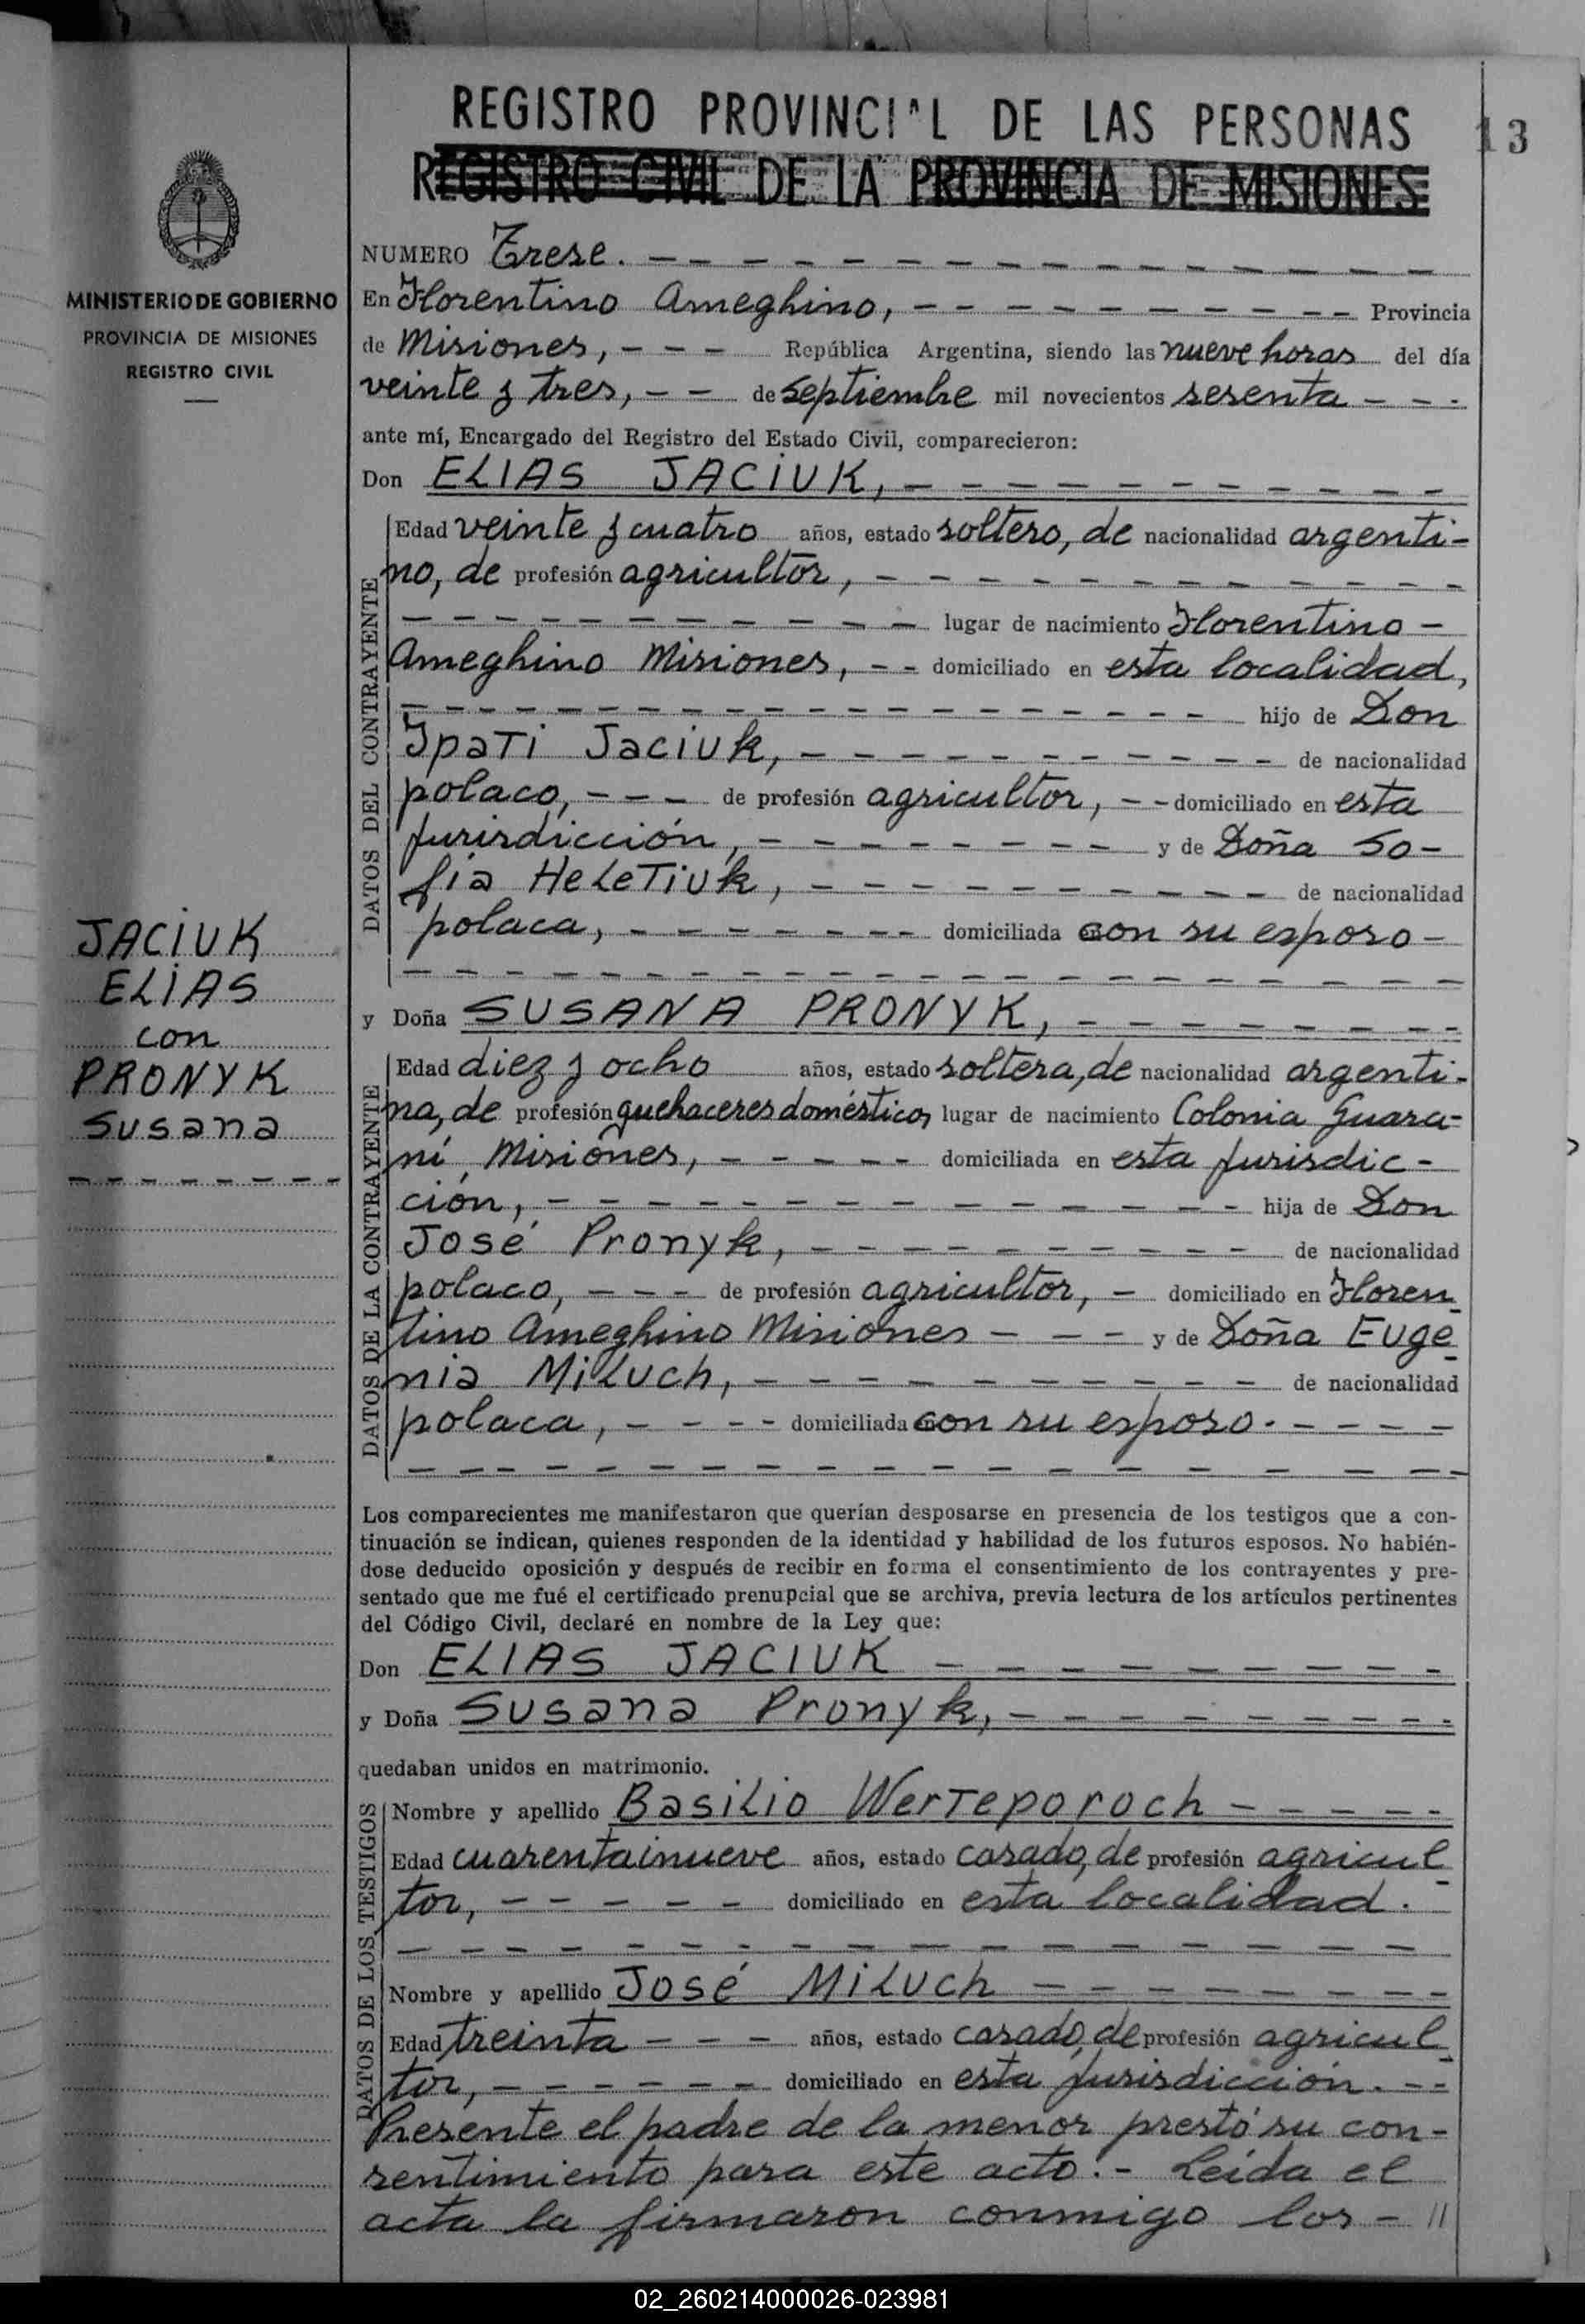 REGISTRO PROVINCIAL DE LAS PERSONAS
13
REGISTRO CIVIL DE LA PROVINCIA DE MISIONES
MINISTERIO DE GOBIERNO
PROVINCIA DE MISIONES
REGISTRO CIVIL
JACIUK
ELIAS
con
PRONYK
Susana
NUMERO Trese.
En Florentino Ameghino, Provincia
de Misiones, República Argentina, siendo las nueve horas del día
veinte y tres, de septiembre mil novecientos sesenta
ante mí, Encargado del Registro del Estado Civil, comparecieron:
Don ELIAS JACIUK,
DATOS DEL CONTRAYENTE
Edad veinte y cuatro años, estado soltero, de nacionalidad argenti-
no, de profesión agricultor,
lugar de nacimiento Florentino
Ameghino Misiones, domiciliado en esta localidad,
hijo de Don
Ipati Jaciuk, de nacionalidad
polaco, de profesión agricultor, domiciliado en esta
jurisdicción, y de Doña So-
fia Heletiuk, de nacionalidad
polaca, domiciliada con su esposo
y Doña SUSANA PRONYK,
DATOS DE LA CONTRAYENTE
Edad diez y ocho años, estado soltera, de nacionalidad argenti-
na, de profesión quehaceres domésticos, lugar de nacimiento Colonia Guara-
ní Misiones, domiciliada en esta jurisdic-
ción, hija de Don
José Pronyk, de nacionalidad
polaco, de profesión agricultor, domiciliado en Floren
tino Ameghino Misiones y de Doña Euge
nia Miluch, de nacionalidad
polaca, domiciliada con su esposo.
Los comparecientes me manifestaron que querían desposarse en presencia de los testigos que a con-
tinuación se indican, quienes responden de la identidad y habilidad de los futuros esposos. No habién-
dose deducido oposición y después de recibir en forma el consentimiento de los contrayentes y pre-
sentado que me fué el certificado prenupcial que se archiva, previa lectura de los artículos pertinentes
del Código Civil, declaré en nombre de la Ley que:
Don ELIAS JACIUK
y Doña Susana Pronyk,
quedaban unidos en matrimonio.
DATOS DE LOS TESTIGOS
Nombre y apellido Basilio Werteporoch
Edad cuarentainueve años, estado casado, de profesión agricul
tor, domiciliado en esta localidad.
Nombre y apellido José Miluch
Edad treinta años, estado casado, de profesión agricul
tor, domiciliado en esta jurisdicción.
Presente el padre de la menor prestó su con-
sentimiento para este acto.- Leída el
acta la firmaron conmigo los - //
02_260214000026-023981